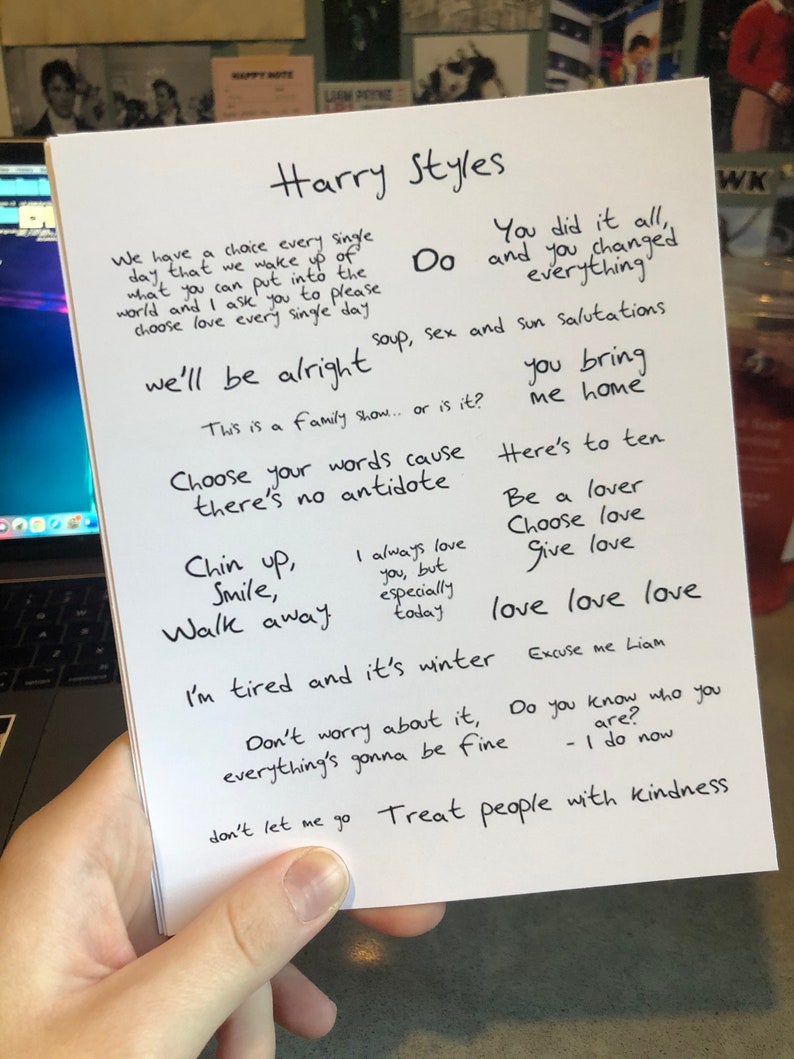 HAPPY NOTE
LIAM PAYNE
WK
Harry Styles
We have a choice every single
day that we wake up of
what you can put into the
world and I ask you to please
choose love every single day
Do
You did it all,
and you changed
everything
soup, sex and sun salutations
we'll be alright
you bring
me home
This is a family show... or is it?
Choose your words cause
there's no antidote
Here's to ten
Be a lover
Choose love
Give love
Chin up,
Smile,
Walk away.
I always love
you, but
especially
today
love love love
I'm tired and it's winter
Excuse me Liam
Don't worry about it,
everything's gonna be fine
Do you know who you
are?
- I do now
don't let me go
Treat people with kindness